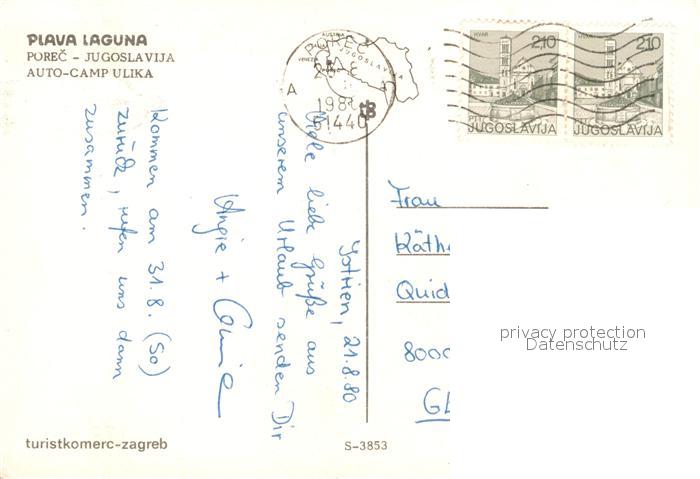 PLAVA LAGUNA
POREČ – JUGOSLAVIJA
AUTO-CAMP ULIKA
POREČ
JUGOSLAVIJA
A
51440
HVAR
2,10
PTT
JUGOSLAVIJA
2,10
JUGOSLAVIJA
Istrien, 21.8.80
Viele liebe Grüße aus
unserem Urlaub senden Dir
Angie +
Kommen am 31.8. (So)
zurück, rufen uns dann
zusammen.
Frau
Käth
Quid
8000
privacy protection
Datenschutz
turistkomerc-zagreb
S-3853